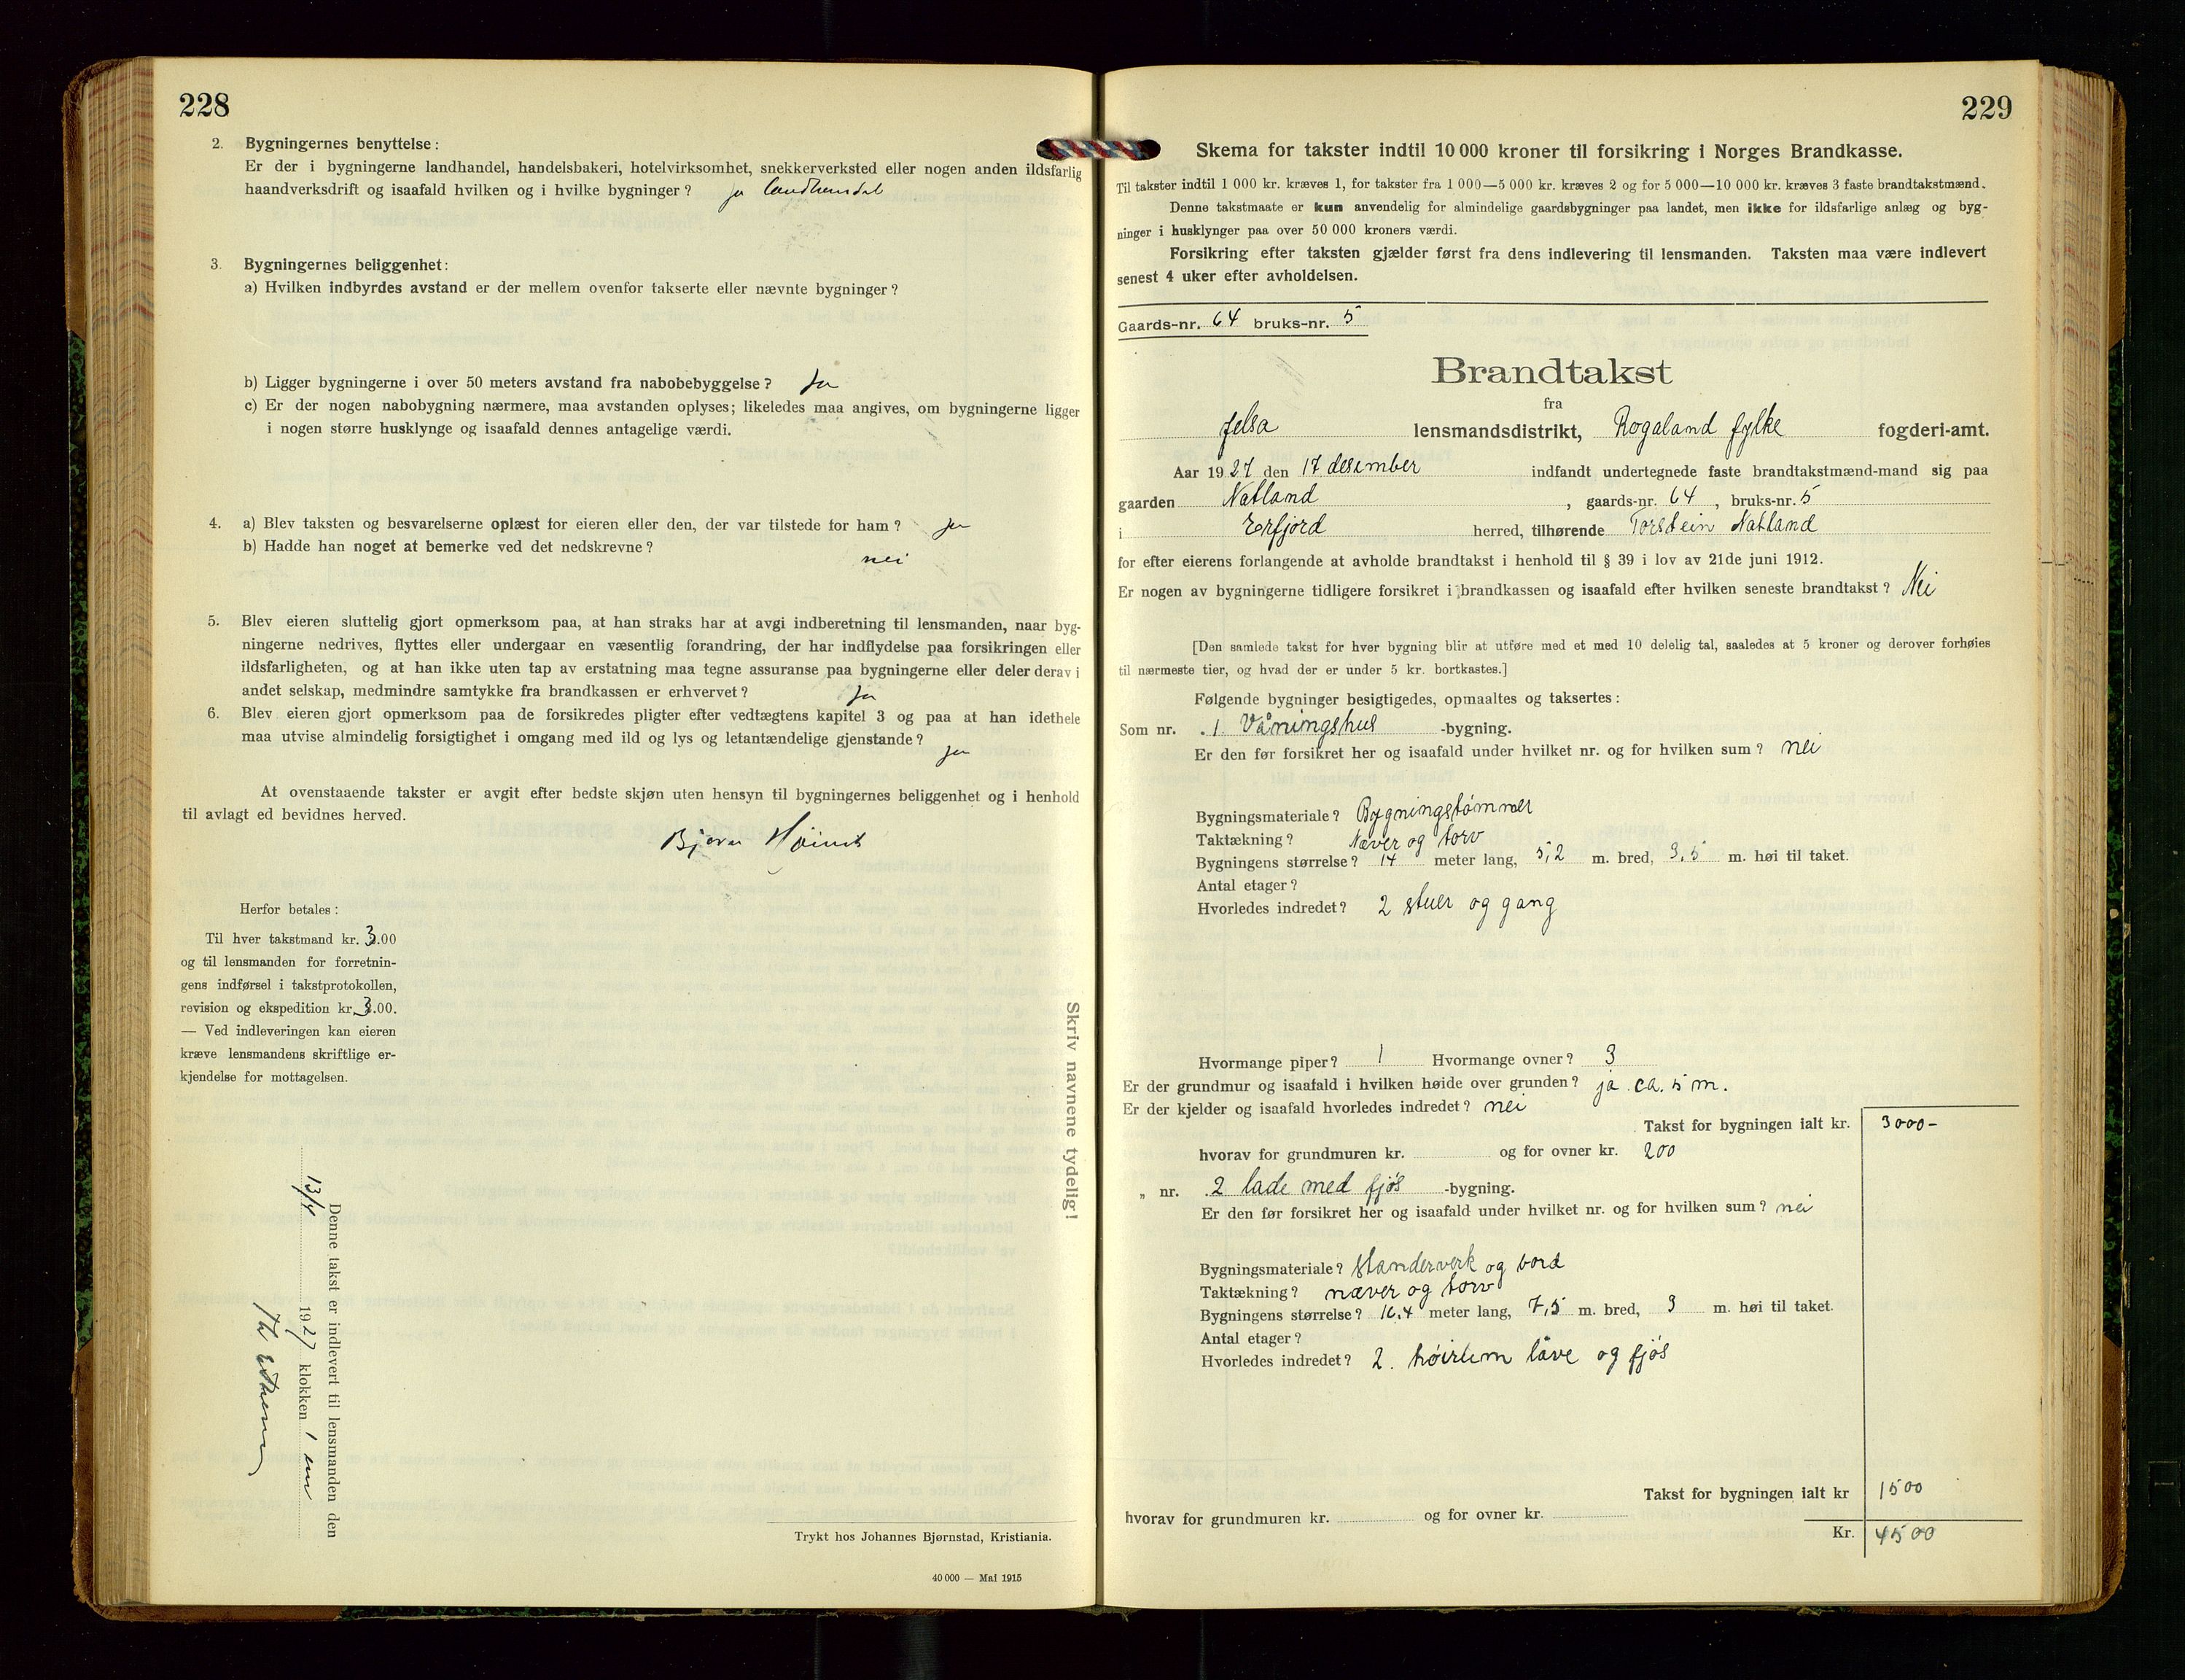 228
2. Bygningernes benyttelse:
Er der i bygningerne landhandel, handelsbakeri, hotelvirksomhet, snekkerverksted eller nogen anden ildsfarlig
haandverksdrift og isaafald hvilken og i hvilke bygninger? ja landhandel
3. Bygningernes beliggenhet:
a) Hvilken indbyrdes avstand er der mellem ovenfor takserte eller nævnte bygninger?
b) Ligger bygningerne i over 50 meters avstand fra nabobebyggelse? Ja
c) Er der nogen nabobygning nærmere, maa avstanden oplyses; likeledes maa angives, om bygningerne ligger
i nogen større husklynge og isaafald dennes antagelige værdi.
4. a) Blev taksten og besvarelserne oplæst for eieren eller den, der var tilstede for ham? ja
b) Hadde han noget at bemerke ved det nedskrevne?
nei
5. Blev eieren sluttelig gjort opmerksom paa, at han straks har at avgi indberetning til lensmanden, naar byg-
ningerne nedrives, flyttes eller undergaar en væsentlig forandring, der har indflydelse paa forsikringen eller
ildsfarligheten, og at han ikke uten tap av erstatning maa tegne assuranse paa bygningerne eller deler derav i
andet selskap, medmindre samtykke fra brandkassen er erhvervet?
Ja
6. Blev eieren gjort opmerksom paa de forsikredes pligter efter vedtægtens kapitel 3 og paa at han idethele
maa utvise almindelig forsigtighet i omgang med ild og lys og letantændelige gjenstande?
ja
At ovenstaaende takster er avgit efter bedste skjøn uten hensyn til bygningernes beliggenhet og i henhold
til avlagt ed bevidnes herved.
Bjørn
Herfor betales:
Til hver takstmand kr. 3.00
og til lensmanden for forretnin-
gens indførsel i takstprotokollen,
revision og ekspedition kr. 3.00.
— Ved indleveringen kan eieren
kræve lensmandens skriftlige er-
kjendelse for mottagelsen.
Skriv navnene tydelig!
Denne takst er indlevert til lensmanden den
13/4 1927 klokken 1 em
Trykt hos Johannes Bjørnstad, Kristiania.
40 000 — Mai 1915
229
Skema for takster indtil 10 000 kroner til forsikring i Norges Brandkasse.
Til takster indtil 1 000 kr. kræves 1, for takster fra 1 000—5 000 kr. kræves 2 og for 5 000—10 000 kr. kræves 3 faste brandtakstmænd.
Denne takstmaate er kun anvendelig for almindelige gaardsbygninger paa landet, men ikke for ildsfarlige anlæg og byg-
ninger i husklynger paa over 50 000 kroners værdi.
Forsikring efter taksten gjælder først fra dens indlevering til lensmanden. Taksten maa være indlevert
senest 4 uker efter avholdelsen.
Gaards-nr. 64 bruks-nr. 5
Brandtakst
fra
Jelsa lensmandsdistrikt, Rogaland fylke fogderi-amt.
Aar 1927 den 17 desember indfandt undertegnede faste brandtakstmænd-mand sig paa
gaarden Natland, gaards-nr. 64, bruks-nr. 5
i Erfjord herred, tilhørende Torstein Natland
for efter eierens forlangende at avholde brandtakst i henhold til § 39 i lov av 21de juni 1912.
Er nogen av bygningerne tidligere forsikret i brandkassen og isaafald efter hvilken seneste brandtakst? Nei
[Den samlede takst for hver bygning blir at utføre med et med 10 delelig tal, saaledes at 5 kroner og derover forhøies
til nærmeste tier, og hvad der er under 5 kr. bortkastes.]
Følgende bygninger besigtigedes, opmaaltes og taksertes:
Som nr. 1. Våningshus -bygning.
Er den før forsikret her og isaafald under hvilket nr. og for hvilken sum? nei
Bygningsmateriale? Bygningstømmer
Taktækning? Næver og torv
Bygningens størrelse? 14 meter lang, 5,2 m. bred, 3,5 m. høi til taket.
Antal etager?
Hvorledes indredet? 2 stuer og gang
Hvormange piper? 1 Hvormange ovner? 3
Er der grundmur og isaafald i hvilken høide over grunden? ja ca. 5 m.
Er der kjelder og isaafald hvorledes indredet? nei
Takst for bygningen ialt kr. 3000-
hvorav for grundmuren kr. og for ovner kr. 200
„ nr. 2 lade med fjøs -bygning.
Er den før forsikret her og isaafald under hvilket nr. og for hvilken sum? nei
Bygningsmateriale? standerverk og bord
Taktækning? næver og torv
Bygningens størrelse? 16,4 meter lang, 7,5 m. bred, 3 m. høi til taket.
Antal etager?
Hvorledes indredet? 2. låve og fjøs
Takst for bygningen ialt kr 1500
hvorav for grundmuren kr. og for ovner kr.
Kr. 4500